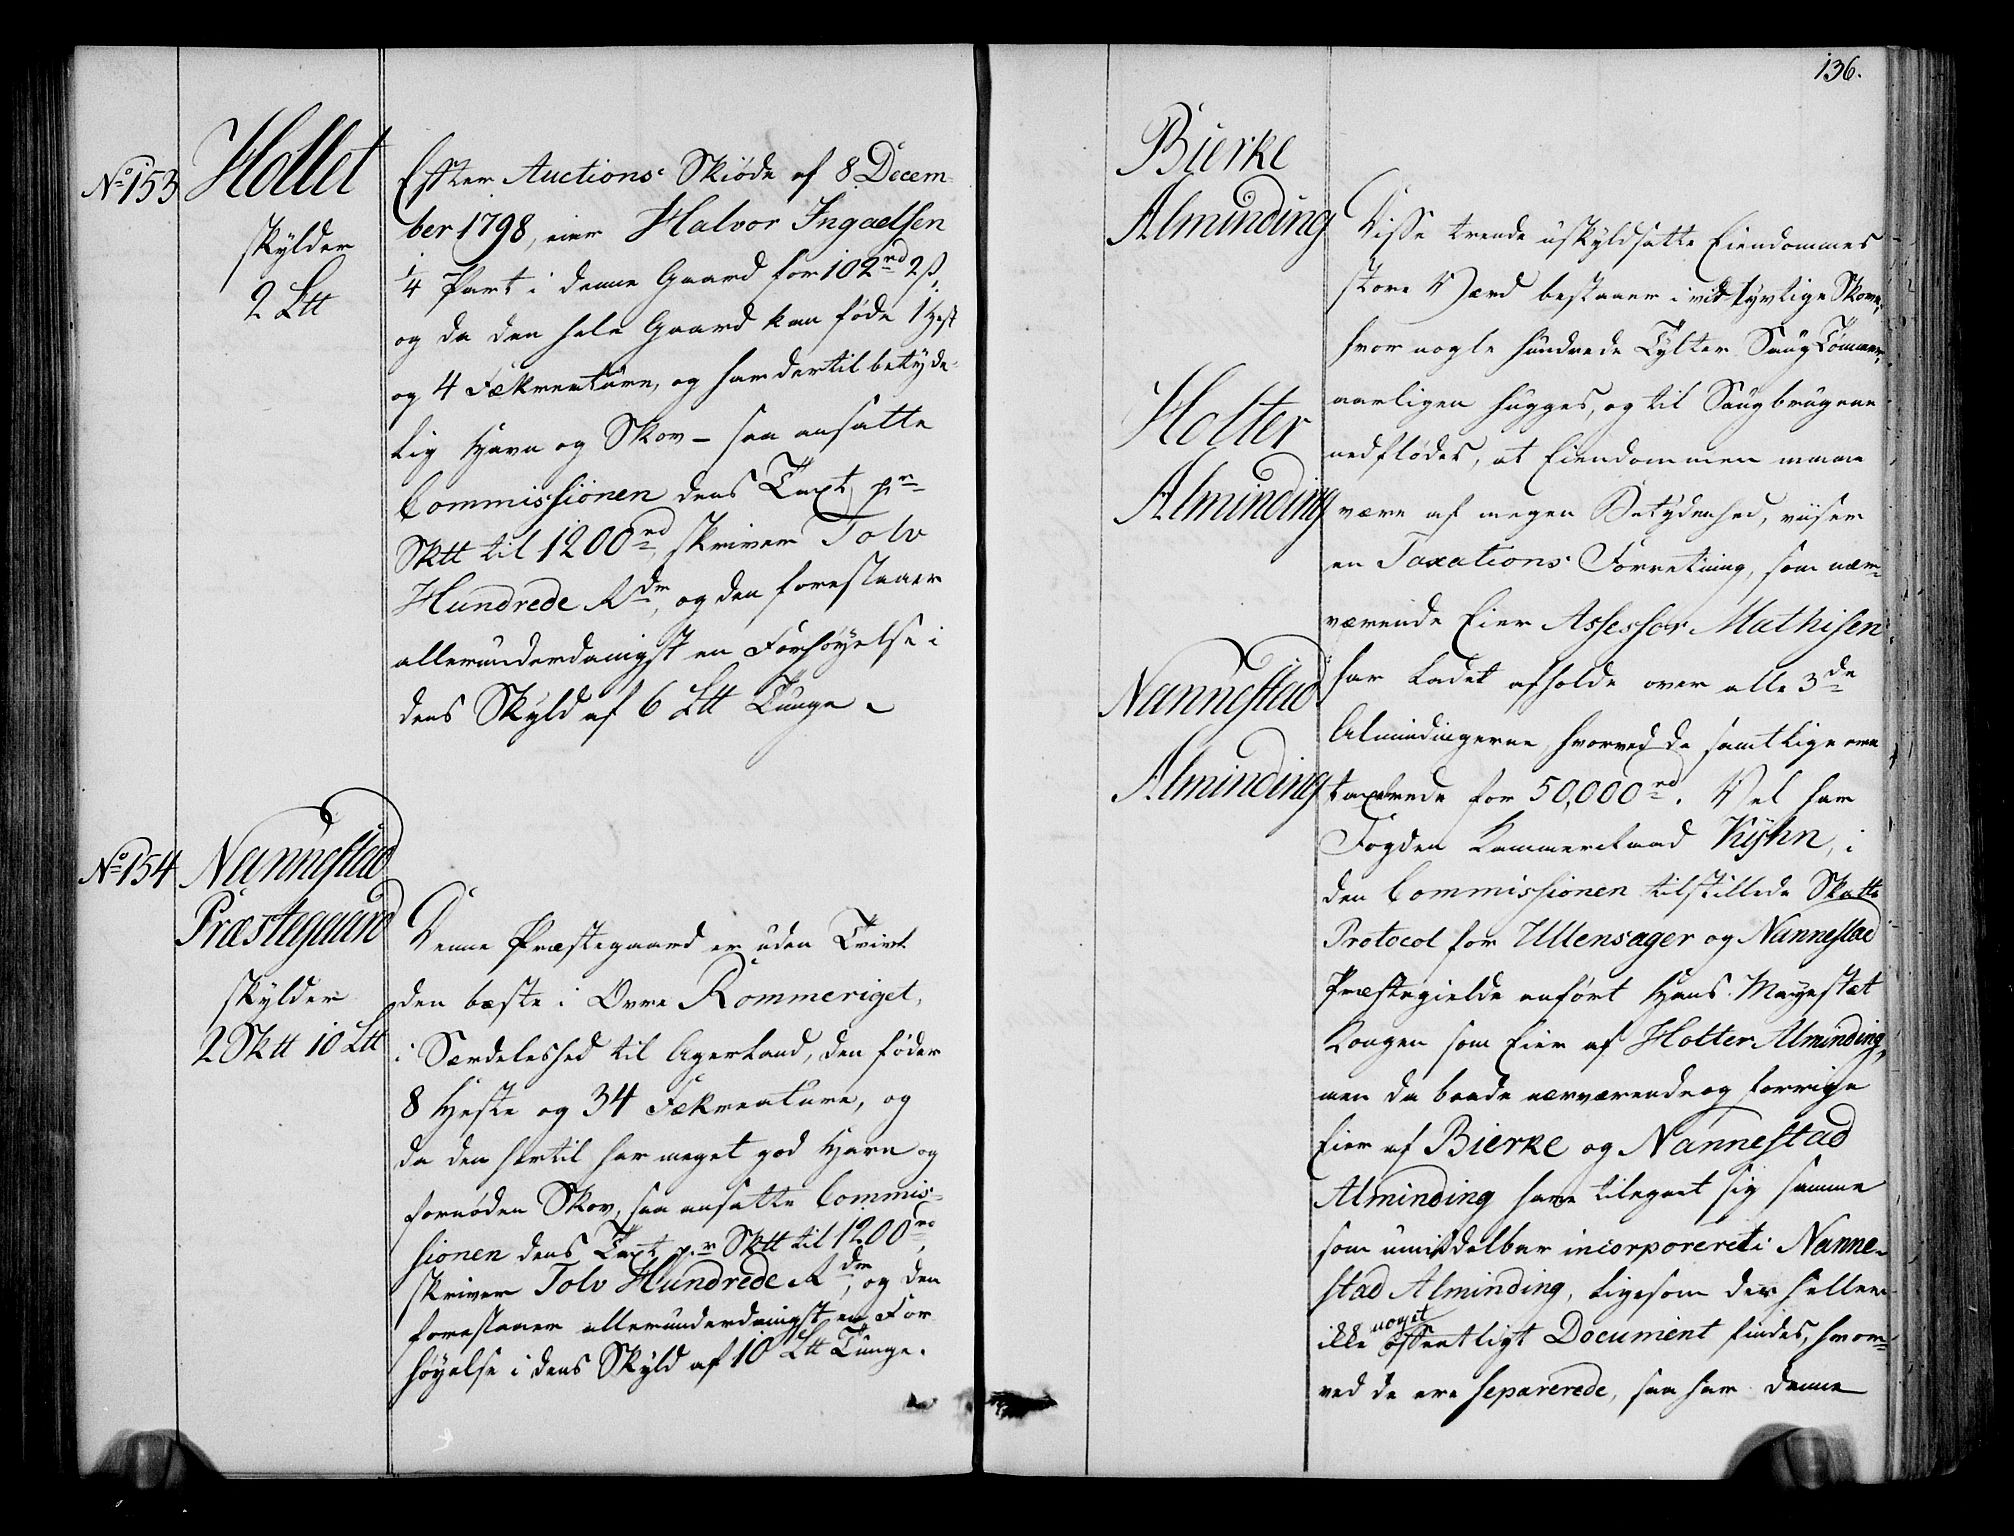 No 153
Hollet
skylder
2 Ltt
Efter Auctions Skiöde af 8 Decem-
ber 1798, eier Halvor Ingaelsen
1/4 Part i denne Gaard for 102 rd 2 ß,
og da den hele Gaard kan föde 1 Hest
og 4 Fækreature, og har dertil betyde-
lig Havn og Skov – saa ansatte
Commissionen dens Taxt pr
Sktt til 1200 rd skriver Tolv
Hundrede Rdr, og den forestaaer
allerunderdanigst en Forhöyelse i
dens Skyld af 6 Ltt Tunge –
No 154
Nannestad
Præstegaard
skylder
2 Sktt 10 Ltt
Denne Præstegaard er uden Tvivl
den bæste i Övre Rommeriget,
i Særdeleshed til Agerland, den föder
8 Heste og 34 Fækreature, og
da den hertil har meget god Havn og
fornöden Skov, saa ansatte Commis-
sionen dens Taxt pr Sktt til 1200 rd,
skriver Tolv Hundrede Rdr, og den
forestaaer allerunderdanigst en For
höyelse i dens Skyld af 10 Ltt Tunge.
136.
Bierke
Alminding
Holter
Alminding
Nannestad
Alminding
Disse trende uskyldsatte Eiendommes
store Værd bestaaer i vidtlyvlige Skove,
hvor nogle hundrede Tylter Saug Tömmer,
aarligen hugges, og til Saugbrugene
nedflödes, at Eiendommen maae
være af megen Betydenhed, viiser
en Taxations Forretning, som nær-
værende Eier Assessor Mathisen
har ladet afholde over alle 3de
Almindingerne, hvorved de samtlige ere
taxerede for 50,000 rd. Vel har
Fogden Kammerraad Kyhn, i
den Commissionen tilstillede Skatte
Protocol for Ullensager og Nannestad
Præstegielde anfört Hans Mayestæt
Kongen som Eier af Holter Alminding,
men da baade nærværende og forrige
Eier af Bierke og Nannestad
Alminding have tilegnet sig samme
som umiddelbar incorporeret i Nanne-
stad Alminding, ligesom der heller
ikke noget offentligt Document findes, hvor-
ved de ere separerede, saa har denne